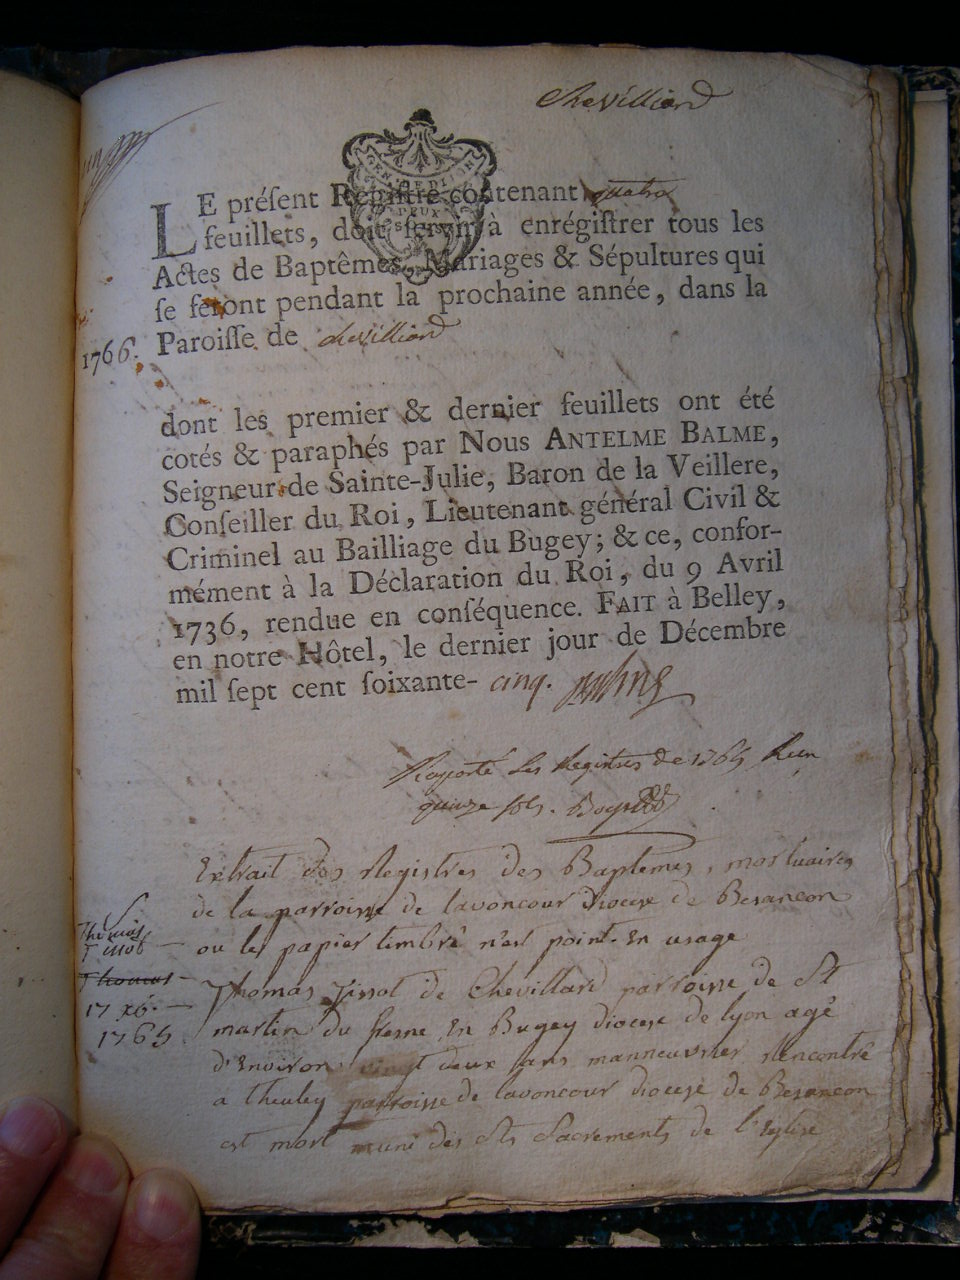 Chevilliard
GEN
DEUX
LE préſent Regiſtre contenant quatre
feuillets, doit ſervir à enrégiſtrer tous les
Actes de Baptêmes, Mariages & Sépultures qui
ſe feront pendant la prochaine année, dans la
1766. Paroiſſe de chevilliard
dont les premier & dernier feuillets ont été
cotés & paraphés par Nous ANTELME BALME,
Seigneur de Sainte-Julie, Baron de la Veillere,
Conſeiller du Roi, Lieutenant général Civil &
Criminel au Bailliage du Bugey; & ce, confor-
mément à la Déclaration du Roi, du 9 Avril
1736, rendue en conſéquence. FAIT à Belley,
en notre Hôtel, le dernier jour de Décembre
mil ſept cent ſoixante- cinq.
Raporté les Registres de 1765
quinze sols.
Extrait des Registres des Baptemes, mortuaires
de la parroisse de lavoncour diocese de Besancon
ou le papier timbré n'est point en usage
Thomas
Tissot
Thomas
17
1765
Thomas Tissot de Chevillard parroisse de St
martin du fresne en Bugey diocese de lyon agé
d'Environ vingt deux ans manneuvrier rencontré
a theuley parroisse de lavoncour diocese de Besancon
est mort muni des Sts Sacrements de l'Eglise